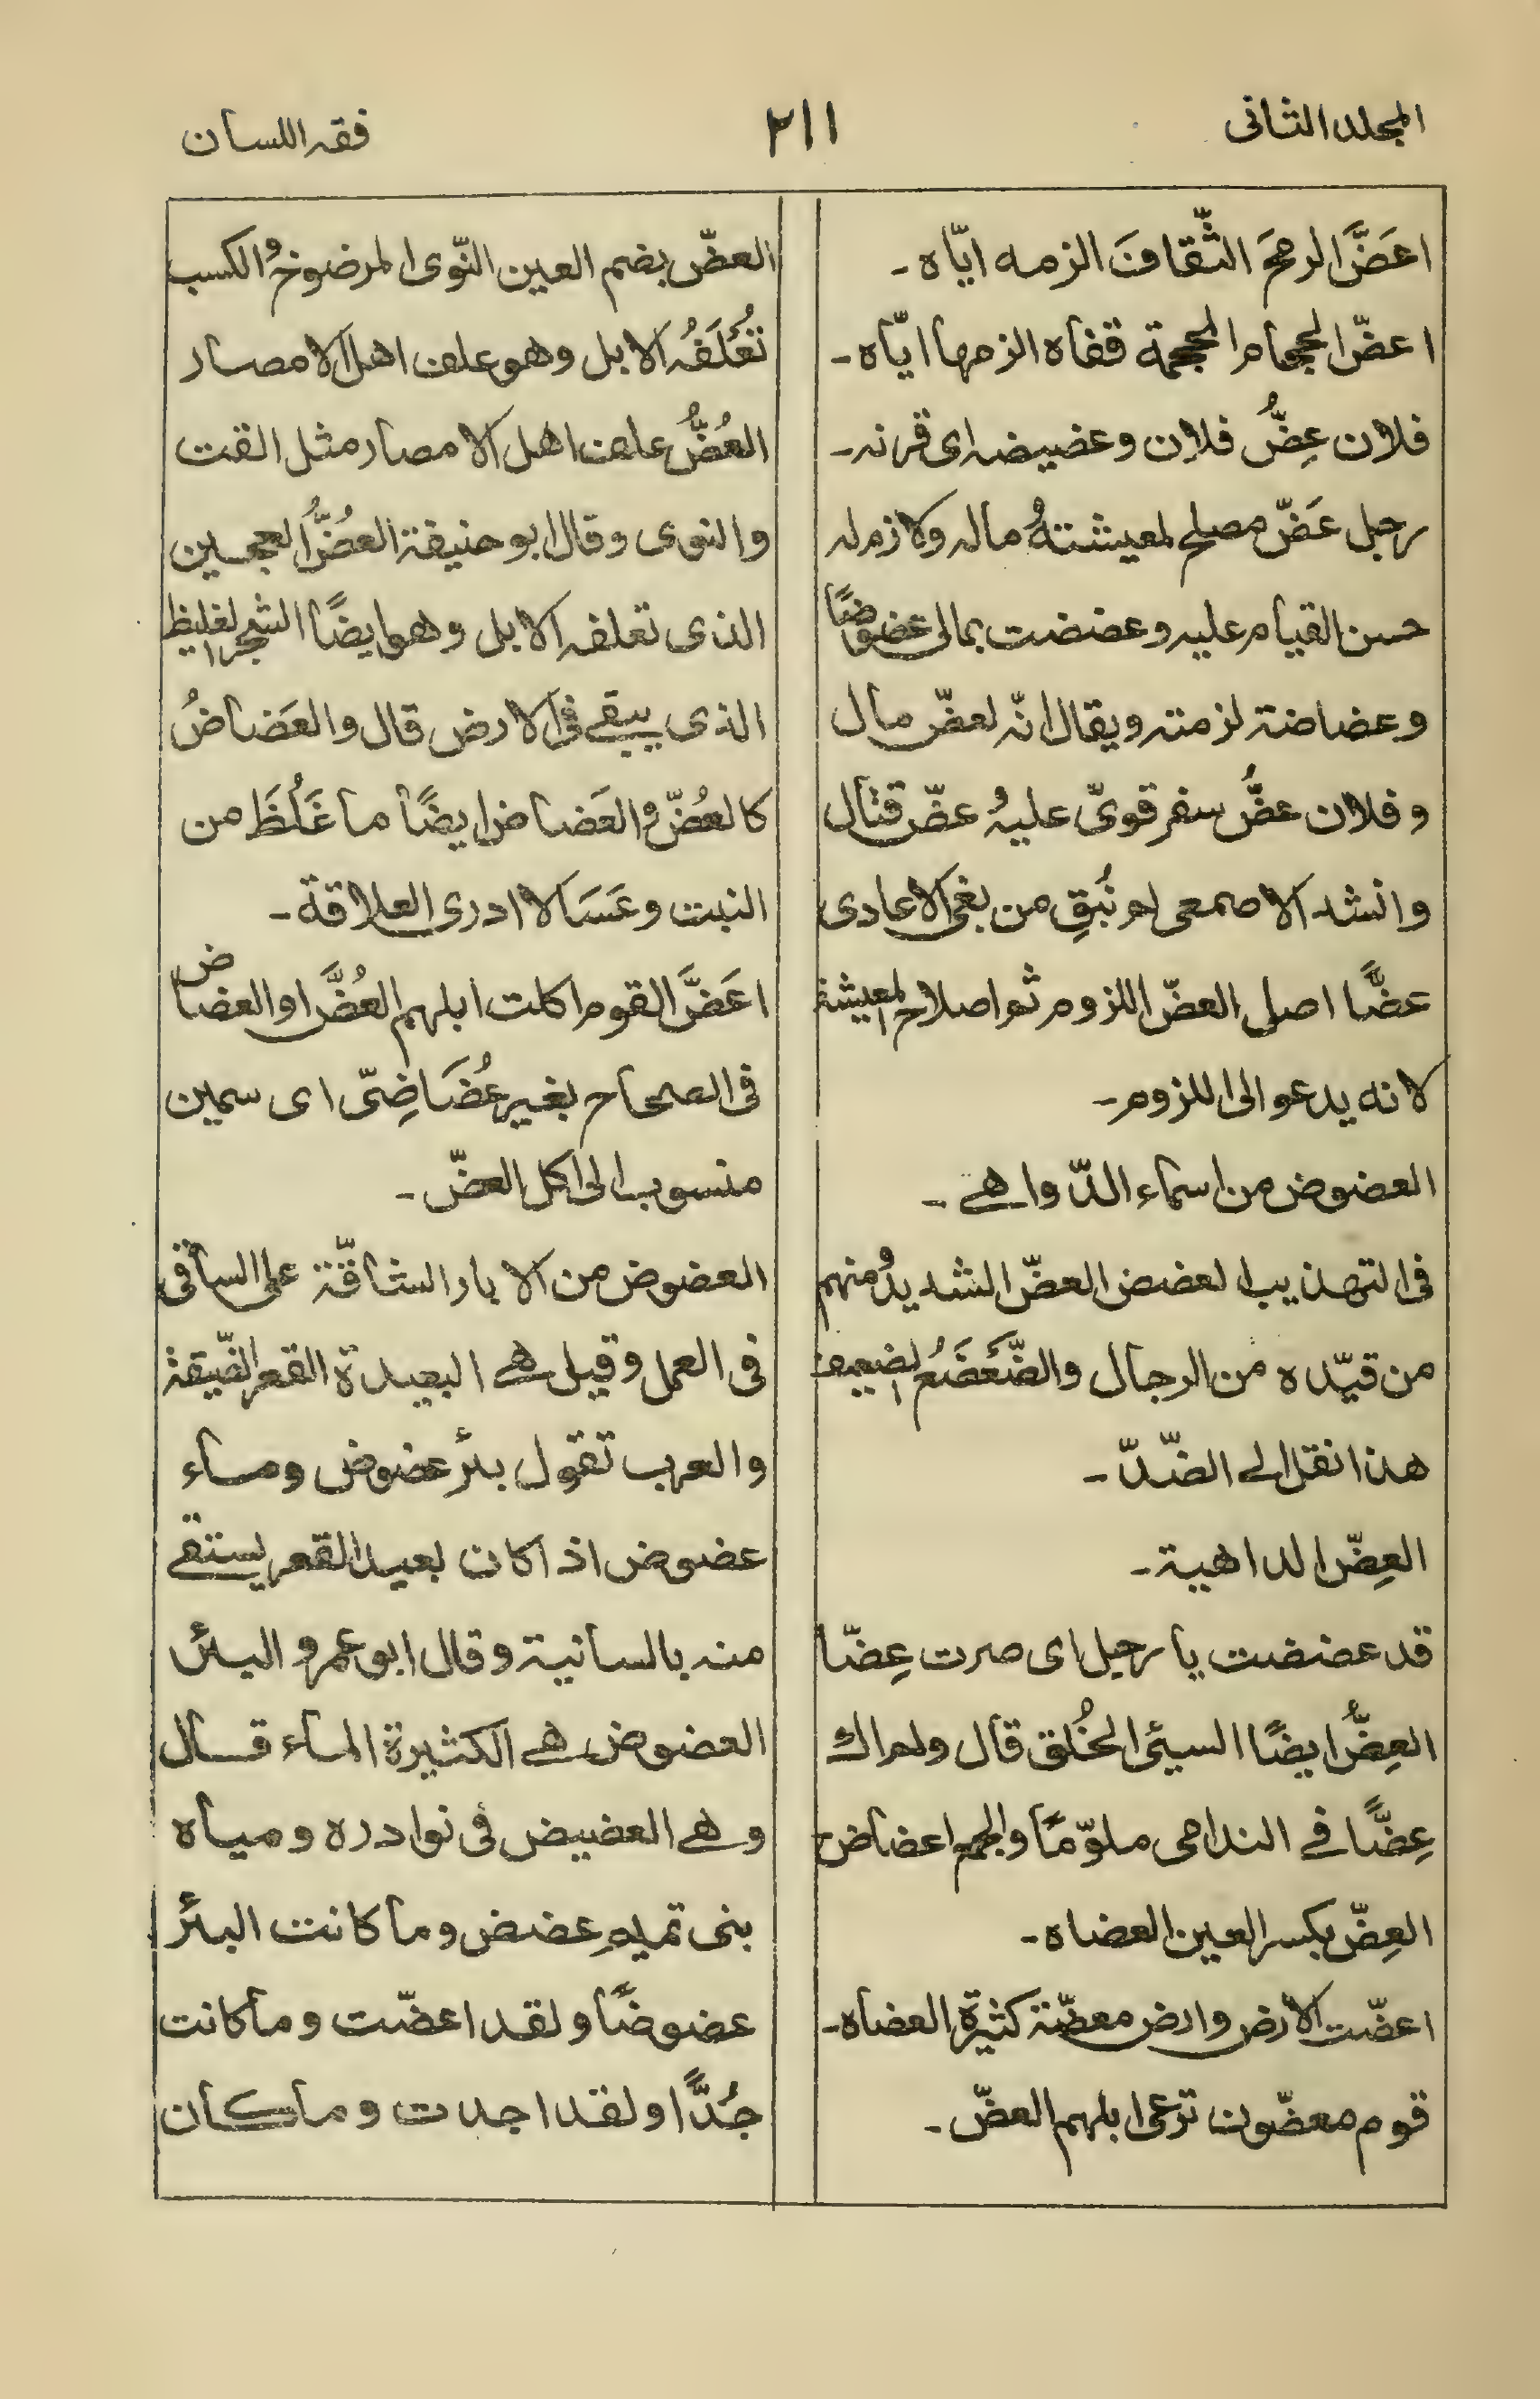 المجلد الثانى
٢١١
فقه اللسان
اعَضَّ الرمحَ الثِّقافَ الزمه ايّاه ـ
اعضّ الحجام المحجمة قفاه الزمها ايّاه ـ
فلان عِضُّ فلان وعضيضه اى قرنه ـ
رجل عَضّ مصلح لمعيشته وماله ولازم له
حسن القيام عليه وعضضت بمالى عضوضًا
وعضاضة لزمته ويقال انّه لعضّ مال
وفلان عضُّ سفر قوىّ عليه وعضّ قتال
وانشد الاصمعى لم نُبقِ من بغى الاعادى
عضًّا اصل العضّ اللزوم ثم اصلاح المعيشة
لانه يدعو الى اللزوم ـ
العضوض من اسماء الدّواهى ـ
فى التهذيب العضعض العضّ الشديد ومنهم
من قيّده من الرجال والضَّعَضَعُ الضعيف
هذا نقل الى الضّدّ ـ
العِضّ الداهية ـ
قد عضضت يا رجل اى صرت عِضّا
العِضُّ ايضًا السيئ الخُلق قال ولم اك
عِضًّا فى الندامى ملوّمًا والجمع اعضاض
العِضّ بكسر العين العضاه ـ
اعضّت الارض وارض معضّة كثيرة العضاه ـ
قوم معضّون ترعى ابلهم العضّ ـ
العضّ بضم العين النّوى المرضوخ والكسب
تُعْلَفُه الابل وهو علف اهل الامصار
العُضُّ علف اهل الامصار مثل القت
والنوى وقال ابو حنيفة العُضُّ العجين
الذى تعلفه الابل وهو ايضًا الشجر الغليظ
الذى يبقى فى الارض قال والعَضاضُ
كالعُضّ والعَضاض ايضًا ما غَلُظَ من
النبت وعَسَا لا ادرى العلاقة ـ
اعَضَّ القوم اكلت ابلهم العُضَّ او العضاض
فى الصحاح بغير عُضَاضِىّ اى سمين
منسوب الى اكل العضّ ـ
العضوض من الابار الشاقّة على الساقى
فى العمل وقيل هى البعيدة القعر الضّيقة
والعرب تقول بئر عضوض وماء
عضوض اذا كان بعيد القعر يستقى
منه بالسانية وقال ابو عمرو البئر
العضوض هى الكثيرة الماء قال
وهى العضيض فى نوادره ومياه
بنى تميم عِضض وما كانت البئر
عضوضًا ولقد اعضّت وما كانت
جُدًّا ولقد اجدت وما كان